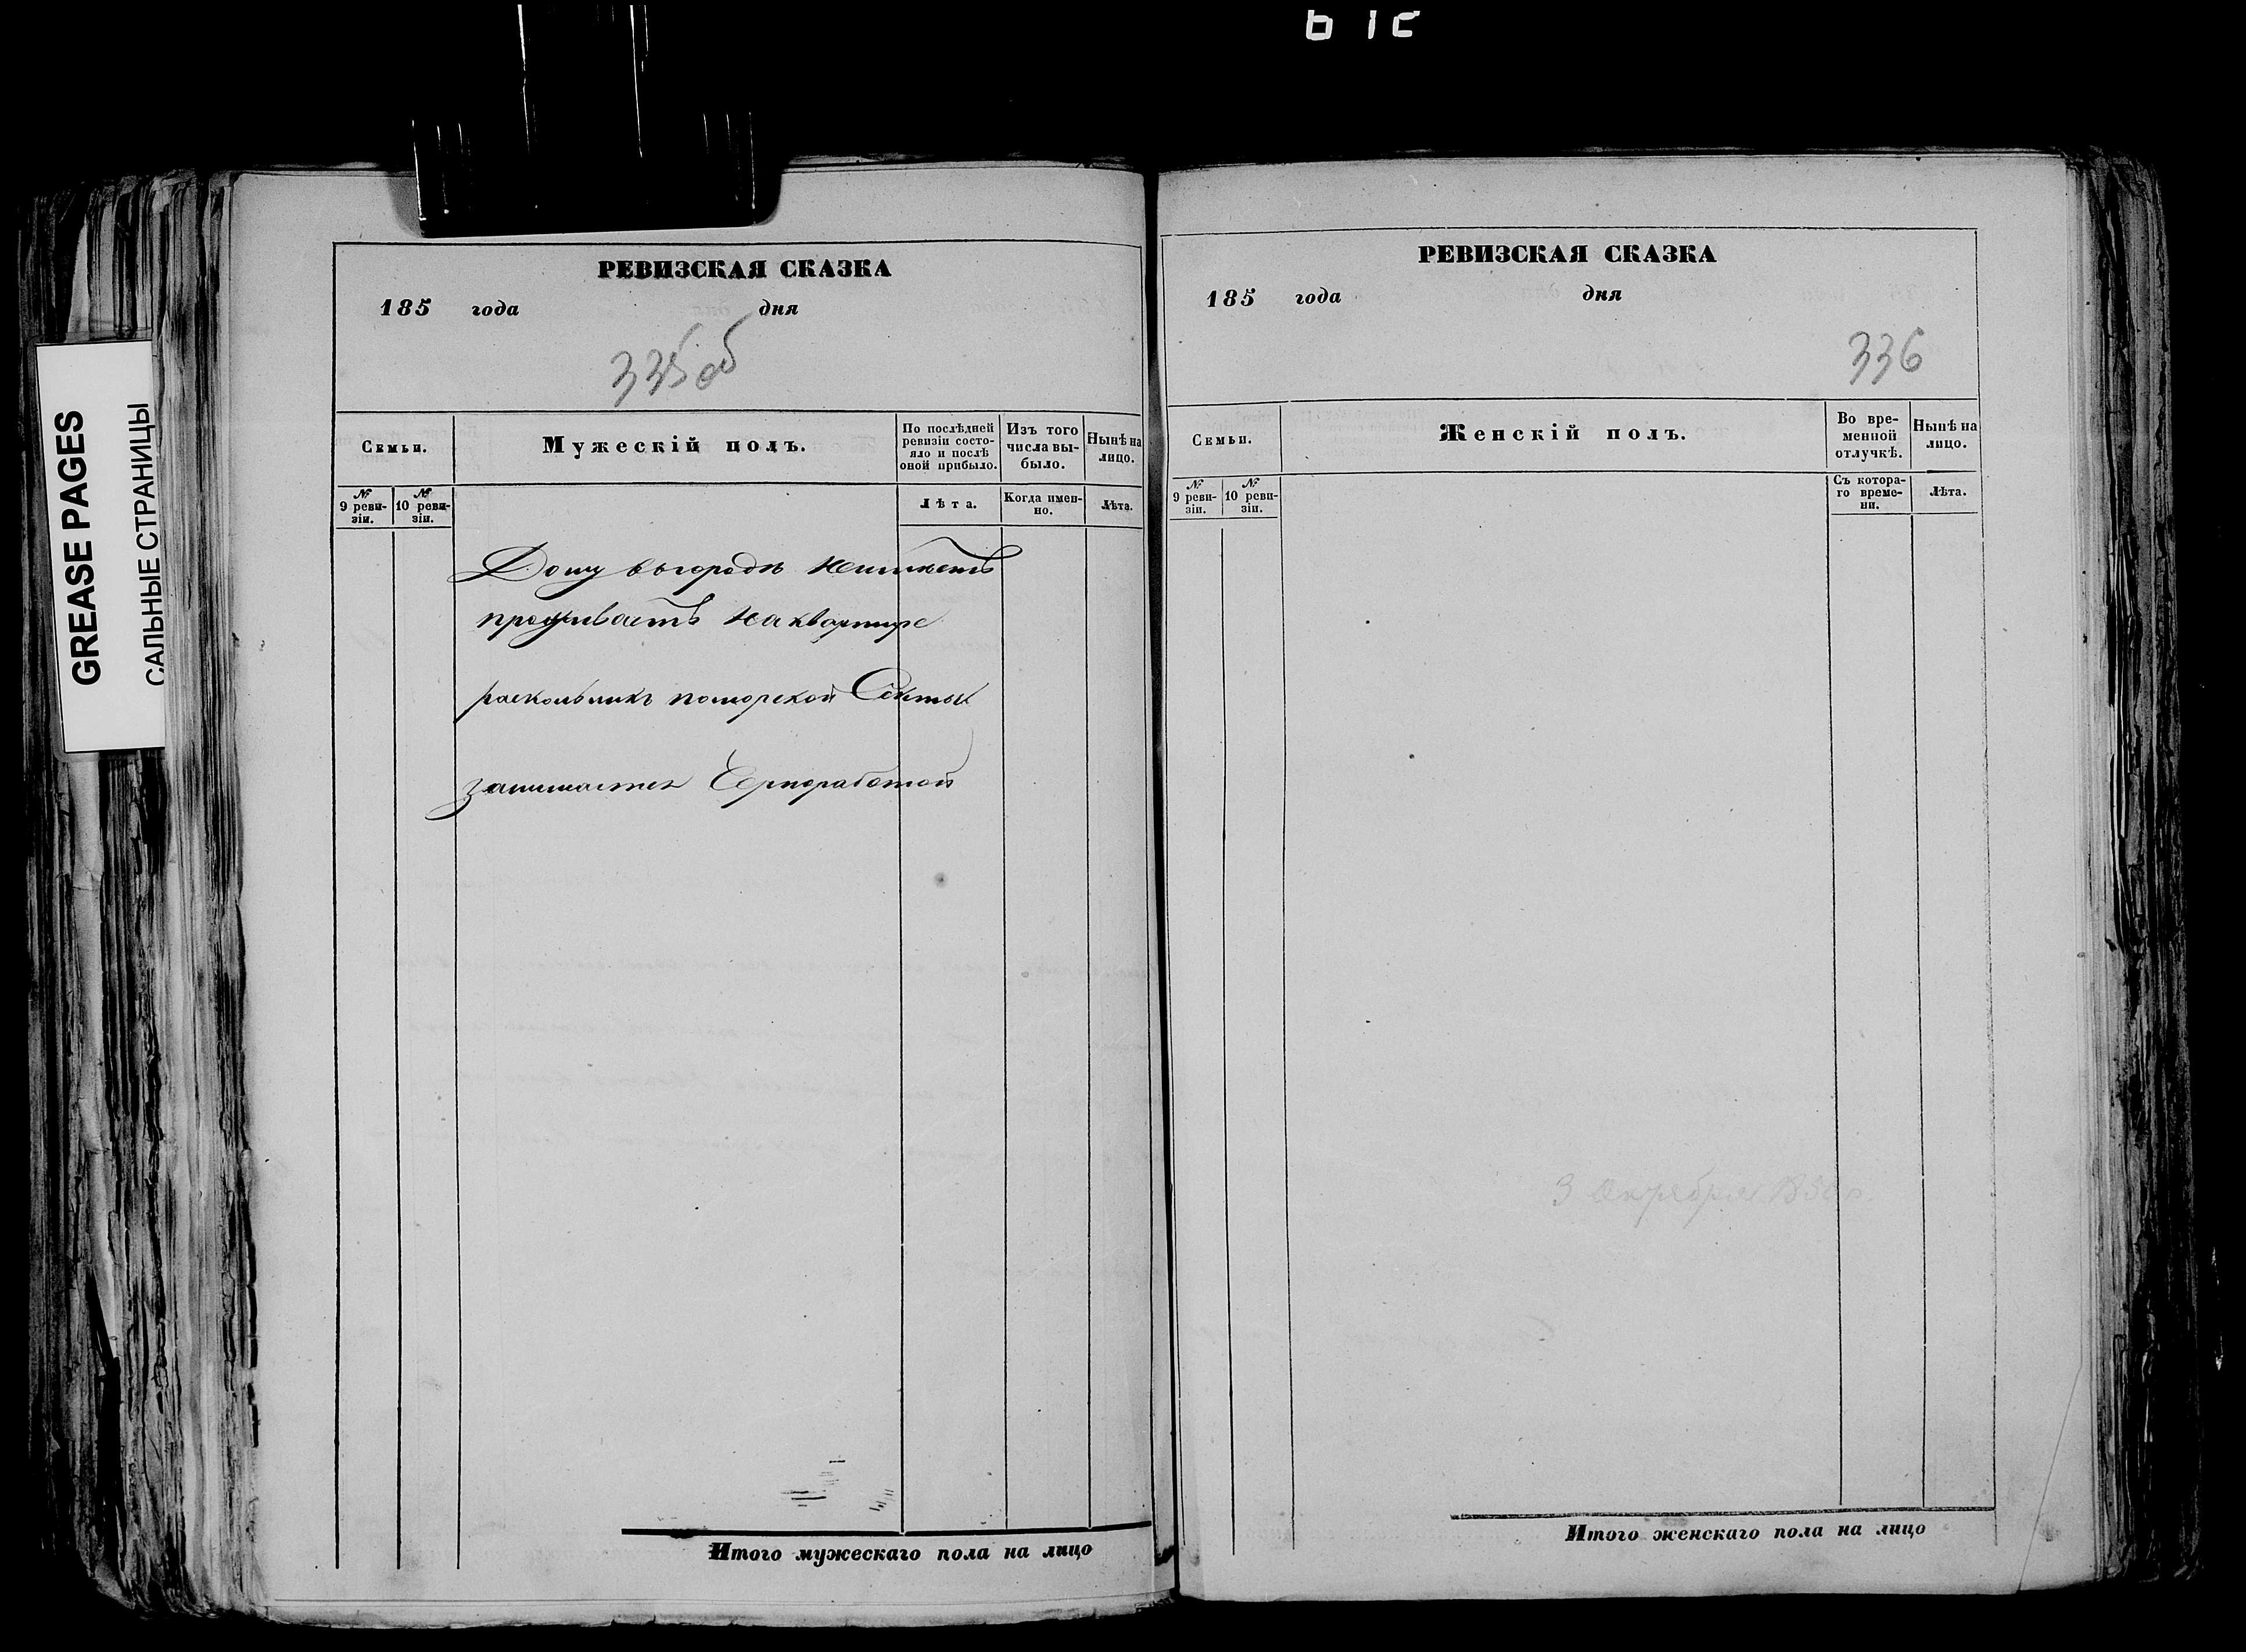 GREASE PAGES
САЛЬНЫЕ СТРАНИЦЫ
РЕВИЗСКАЯ СКАЗКА
185 года дня
335 об
Семьи.
Мужескій полъ.
По послѣдней
ревизіи состо-
яло и послѣ
оной прибыло.
Изъ того
числа вы-
было.
Нынѣ на
лицо.
№
9 реви-
зіи.
№
10 реви-
зіи.
Лѣта.
Когда имен-
но.
Лѣта.
Дому въгородъ Неимѣетъ
проживаетъ Наквартире
раскольникъ поморской Секты
занимается Черноработой
Итого мужескаго пола на лицо
РЕВИЗСКАЯ СКАЗКА
185 года дня
336
Семьи.
Женскій полъ.
Во вре-
менной
отлучкѣ.
Нынѣ на
лицо.
№
9 реви-
зіи.
№
10 реви-
зіи.
Съ котора-
го време-
ни.
Лѣта.
3 Октября
Итого женскаго пола на лицо